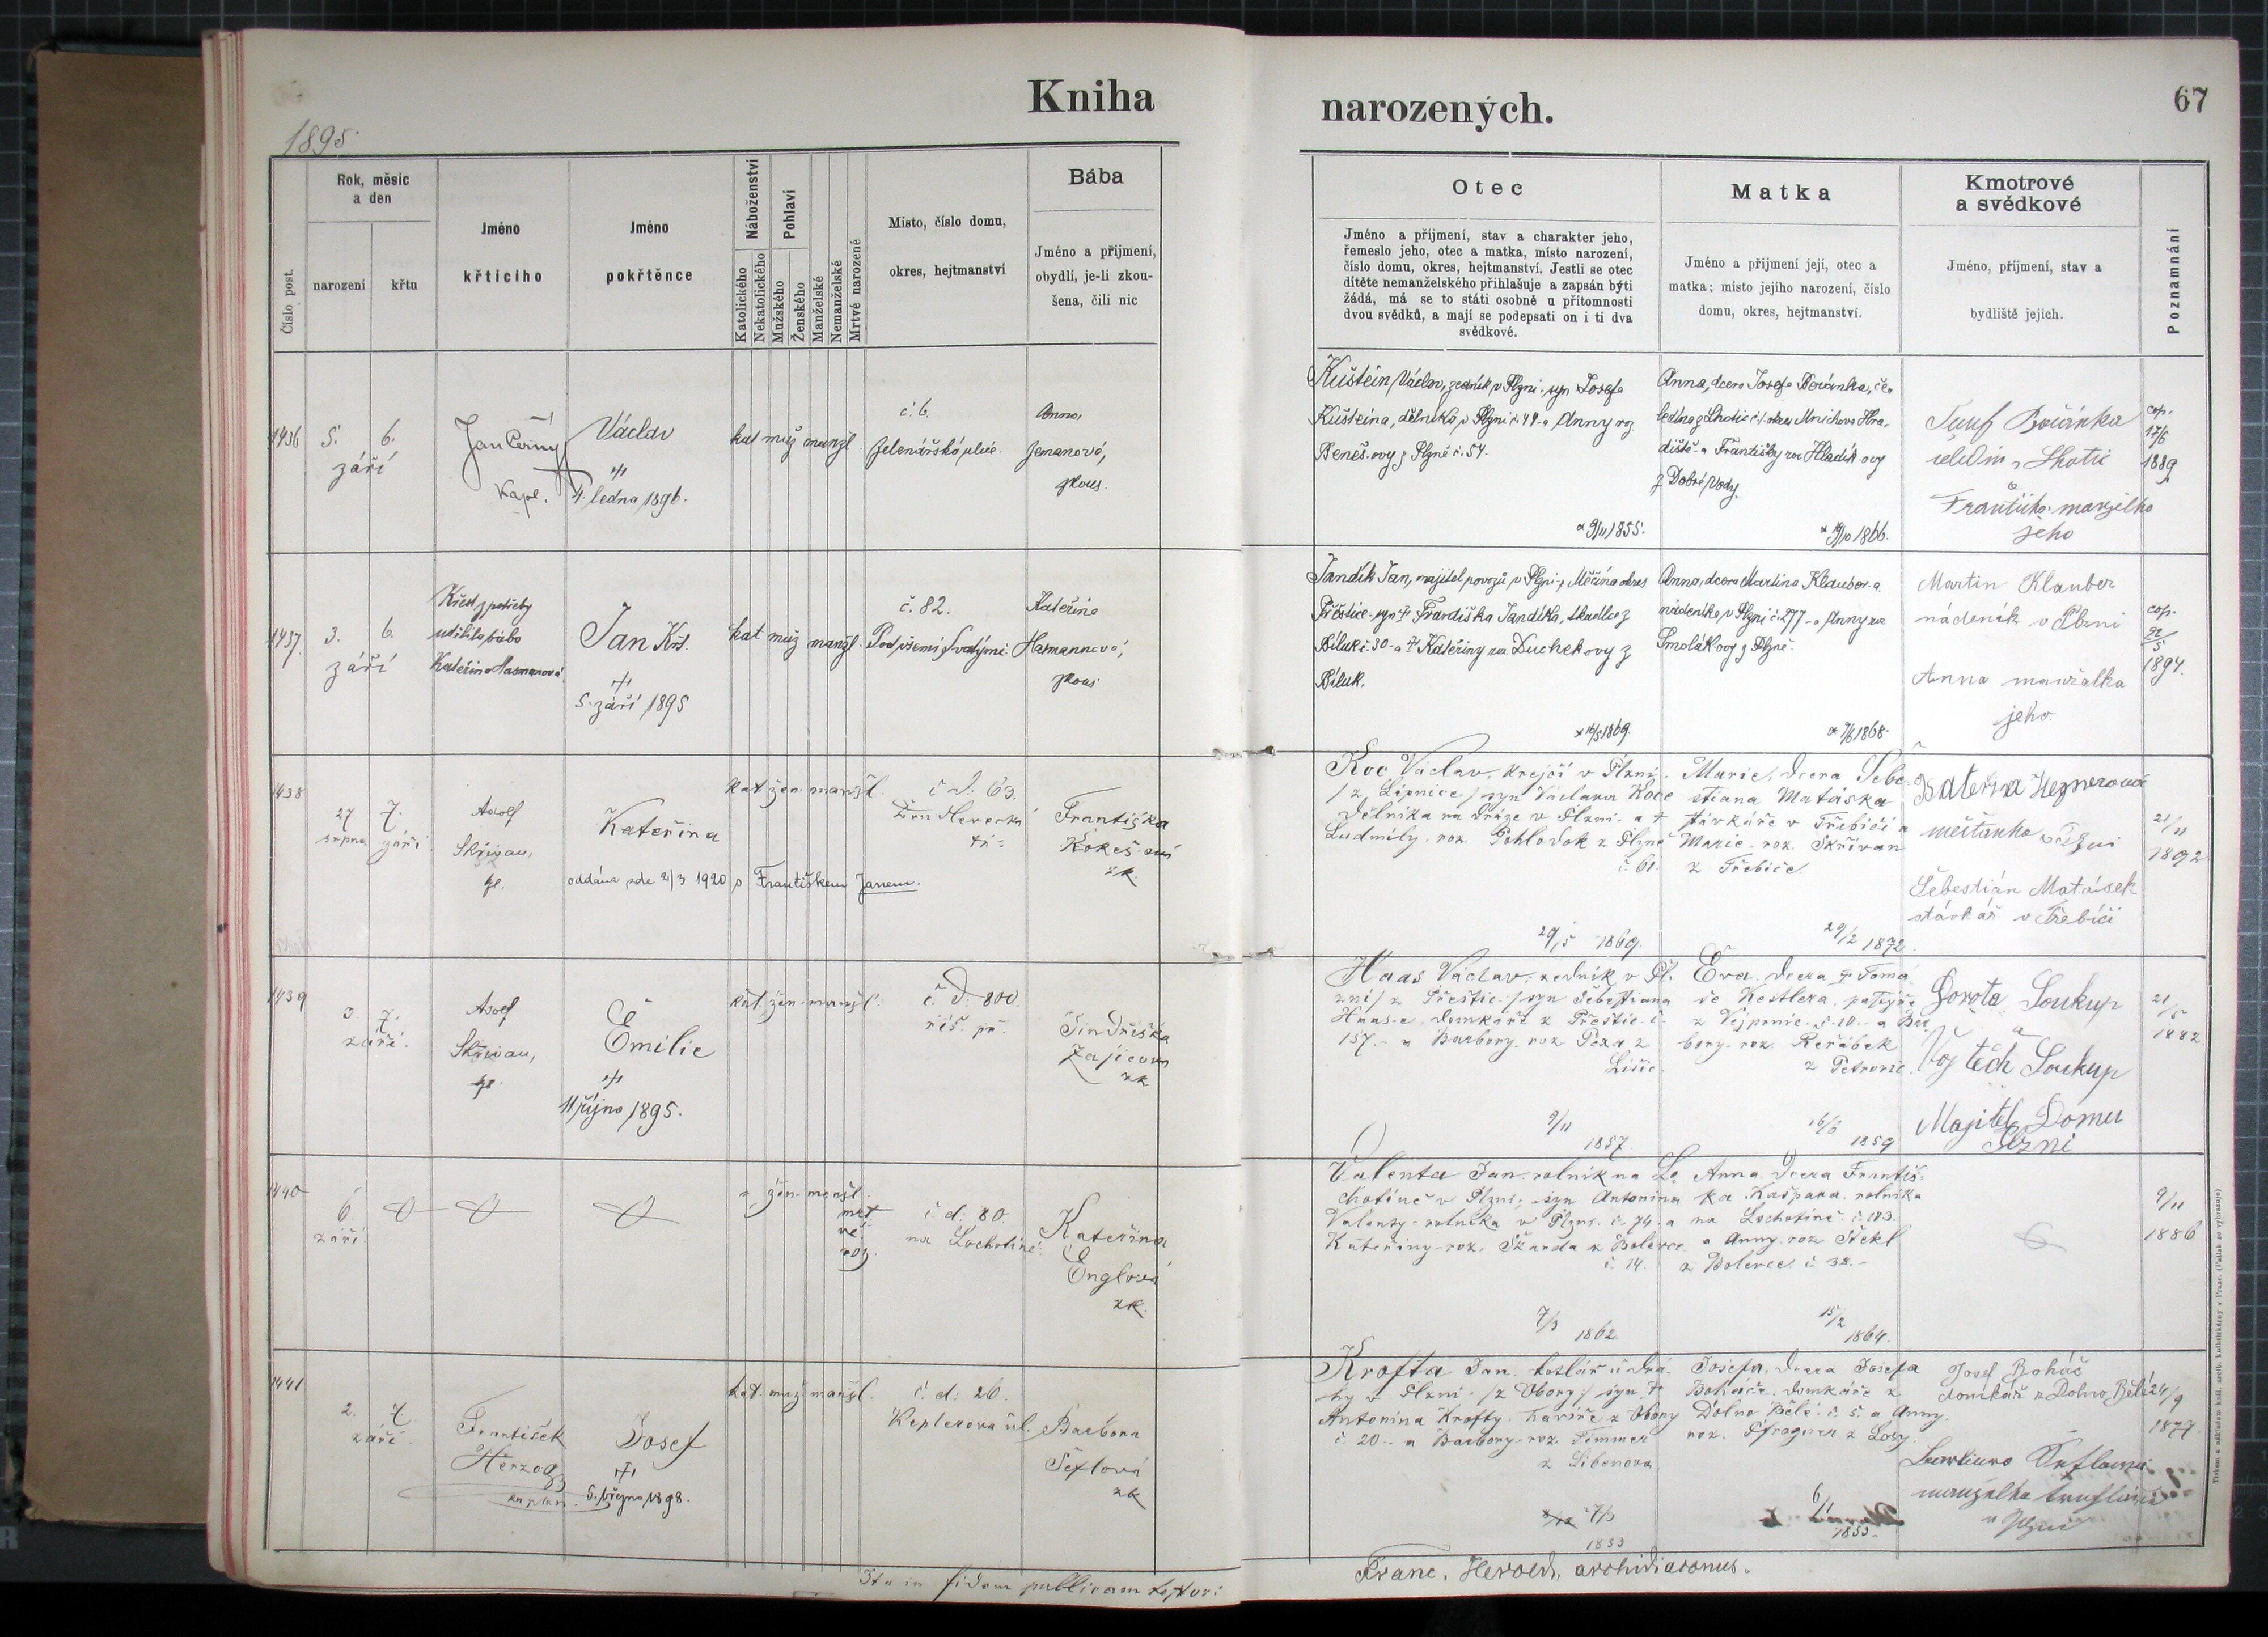 Kniha
narozených.
67
1895
Číslo post.
Rok, měsíc
a den
narození
křtu
Jméno
křtícího
Jméno
pokřtěnce
Náboženství
Katolického
Nekatolického
Pohlaví
Mužského
Ženského
Manželské
Nemanželské
Mrtvě narozené
Místo, číslo domu,
okres, hejtmanství
Bába
Jméno a příjmení,
obydlí, je-li zkou-
šena, čili nic
Otec
Jméno a příjmení, stav a charakter jeho,
řemeslo jeho, otec a matka, místo narození,
číslo domu, okres, hejtmanství. Jestli se otec
dítěte nemanželského přihlašuje a zapsán býti
žádá, má se to státi osobně u přítomnosti
dvou svědků, a mají se podepsati on i ti dva
svědkové.
Matka
Jméno a příjmení její, otec a
matka; místo jejího narození, číslo
domu, okres, hejtmanství.
Kmotrové
a svědkové
Jméno, příjmení, stav a
bydliště jejich.
Poznamnání
1436
5. 6.
září
Jan Černý
Kapl.
Václav
4. ledna 1896.
kat muž manžl.
č. 6.
Zelenářská ulice.
Anna
Zemanová,
zkous.
Kuštein Václav, zedník v Plzni - syn Josefa
Kušteina, dělníka v Plzni č. 44 - a Anny roz
Beneš-ovy z Plzně č. 54.
* 9/11 1855.
Anna, dcera Josefa Bočánka, če-
ledína z Lhotic č. 1. okres Mnichovo Hra-
diště - a Františky roz Hladík-ovy
z Dobré Vody.
1866.
Josef Bočánka
čeledín z Lhotic
a
Františka manželka
jeho
cop.
17/6
1889
1437.
3. 6.
září
Křest z potřeby
udělila bába
Kateřina Hasmanová
Jan Kř.
5. září 1895
kat muž manžl.
č. 82.
Pod všemi Svatými.
Kateřina
Hasmannová,
zkous
Jandík Jan, majitel povozů v Plzni - z Měčína okres
Přeštice - syn † Františka Jandíka, tkadlce z
Bíluk č. 30 - a † Kateřiny roz Duchekovy z
Bíluk.
* 16/5 1869.
Anna, dcera Martina Klaubera
nádeníka v Plzni č. 277 - a Anny roz
Smolákovy z Plzně.
1868.
Martin Klauber
nádeník v Plzni
Anna manželka
jeho.
cop.
1894.
1438
27 7.
srpna září
Adolf
Skřivan,
kpl.
Kateřina
oddána zde 2/3 1920 s Františkem Janem.
kat žen manžl.
č d: 63.
Františka
Kokeš-ová
zk.
Koc Václav, krejčí v Plzni.
/z Lipnice/ syn Václava Koce
dělníka na dráze v Plzni - a †
Ludmily - roz. Pohlodek z Plzně
č. 61.
29/5 1869.
Marie, dcera Šebe-
stiana Matáska
stávkaře v Třebíči a
Marie - roz. Skřivan
z Třebíče.
29/2 1872.
Kateřina Heznerová
měšťanka v Plzni
Šebestián Matásek
stávkař v Třebíči
21/11
1892
1439
3. 7.
září.
Adolf
Skřivan,
kpl.
Emilie
11. října 1895.
kat. žen. manžl.
č d: 800.
říš. př.
Jindřiška
Zajícova
zk.
Haas Václav, zedník v Pl-
zni / z Přeštic / syn Šebestiana
Haas-a, domkáře z Přeštic č.
157. - a Barbory roz
9/11
1857.
Eva, dcera † Tomá-
še Kestlera,
z Vejprnic č. 10. - a Bar
bory - roz. Reřábek
z Petrovic.
16/6 1859
Dorota Soukup
a
Vojtěch Soukup
Majitel Domu
Plzni
21/5
1882
1440
6.
září.
žen. manžl.
mrt
vě
roz.
č. d: 80.
na Lochotíně.
Kateřina
Englová
zk.
Valenta Jan rolník na Lo
chotíně v Plzni, syn Antonína
Valenty - rolníka v Plzni. č. 74 a
Kateřiny - roz. Škarda z Bolevce
č. 14.
7/3 1862.
Anna dcera Františ-
ka Kašpara, rolníka
na Lochotíně. č. 103.
a Anny roz Štěkl
z Bolevce č 38. -
15/2
1864.
9/11
1886
1441
2. 7
září.
František
Herzog
kaplan.
Josef
5. března 1898.
kat. muž. manžl.
č. d: 26.
Keplerova ul.
Barbora
Šeflová
zk
Krofta Jan kotlář u drá-
hy v Plzni - /z Obory/ syn †
Antonína Krofty havíře z Obory
č. 20 - a Barbory - roz. Simmer
z Libenova
7/3
1853
Josefa, dcera Josefa
Boháče, domkáře z
Dolno Bělé č. 5. a Anny.
roz. Pfragner z Lozy.
6/1
1853-
Josef Boháč
domkář z Dolno Bělé
manželka
v Plzni
24/9
1877.
Ita in fidem publicam testor:
Franc. Herold, archidiaconus.
Tiskem a nákladem kníž. arcib. knihtiskárny v Praze. (Patisk se vyhrazuje)